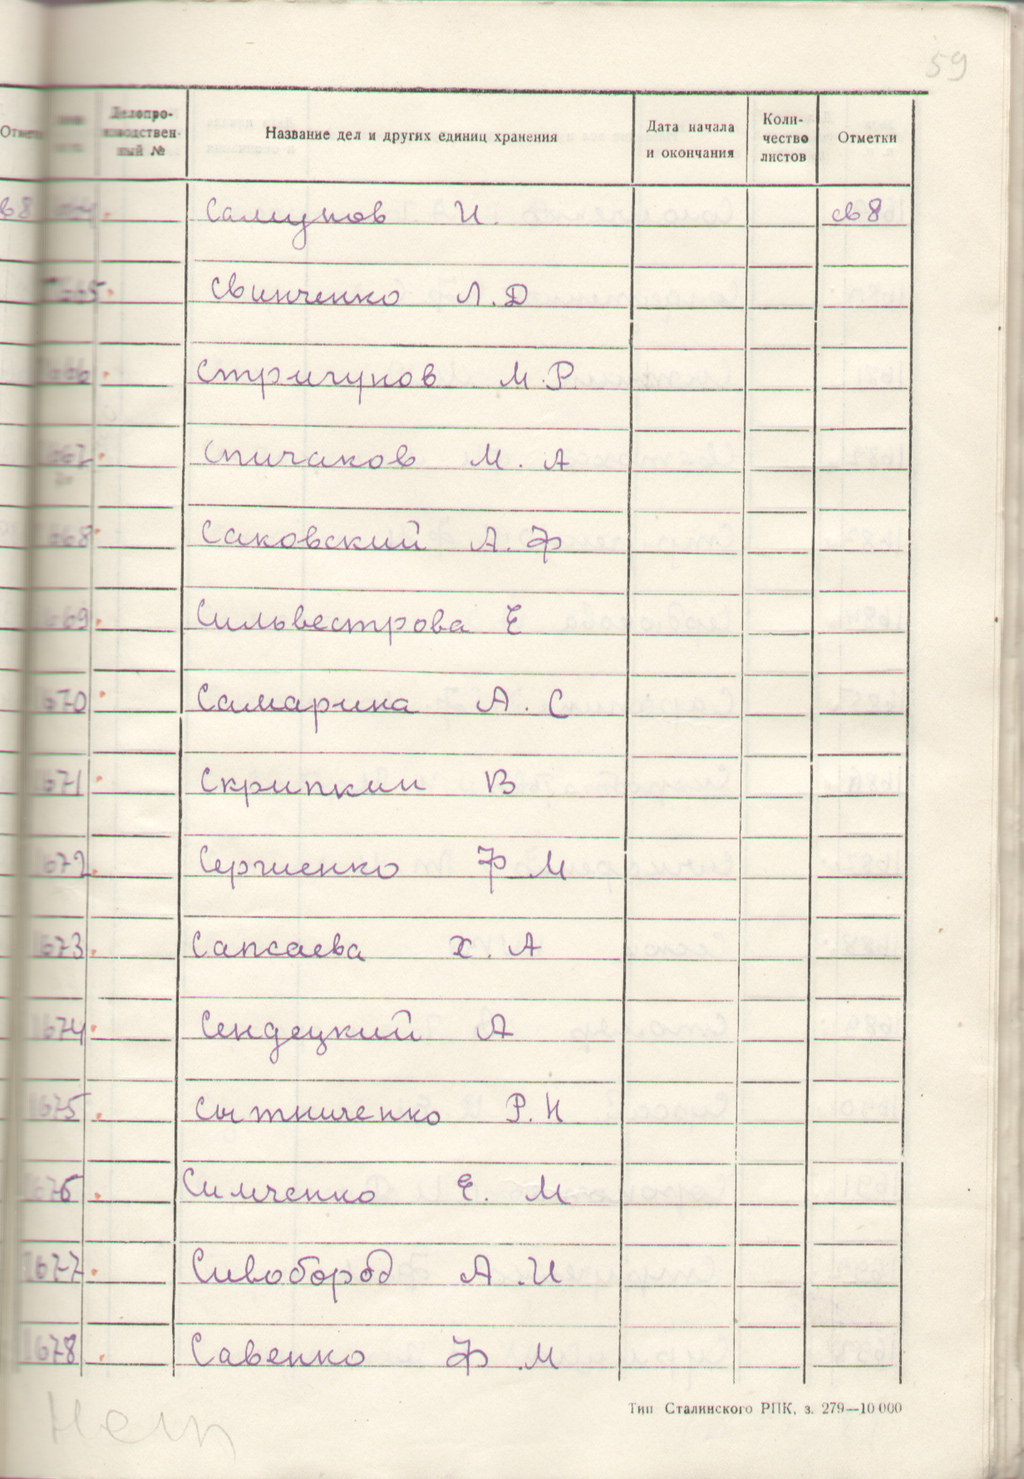 59
Делопроизводственный № Название дел и других единиц хранения Дата начала и окончания Количество листов Отметки
Самунов И. св 8
1665. Свинченко Л.Д
1666. Стригунов М.Р.
1667. Спичаков М. А
1668. Саковский А. Ф
1669. Сильвестрова Е
1670. Самарина А. С
1671. Скрипкин В
1672. Сергиенко Ф М
1673. Сапсаева Х. А
1674. Сендецкий А
1675. Сытниченко Р. Н
1676. Симченко Е. М
1677. Сивобород А.И
1678. Савенко Ф М
Тип Сталинского РПК, з. 279—10 000